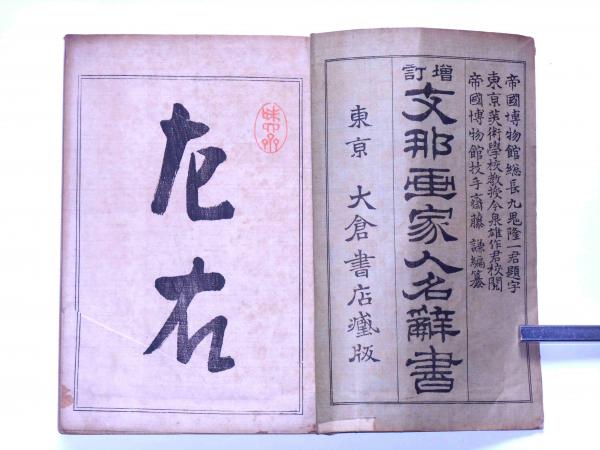 帝國博物館総長九鬼隆一君題字
東京美術學校教授今泉雄作君校閲
帝國博物館技手齋藤謙編纂
増訂
支那画家人名辭書
東京 大倉書店藏版
左右